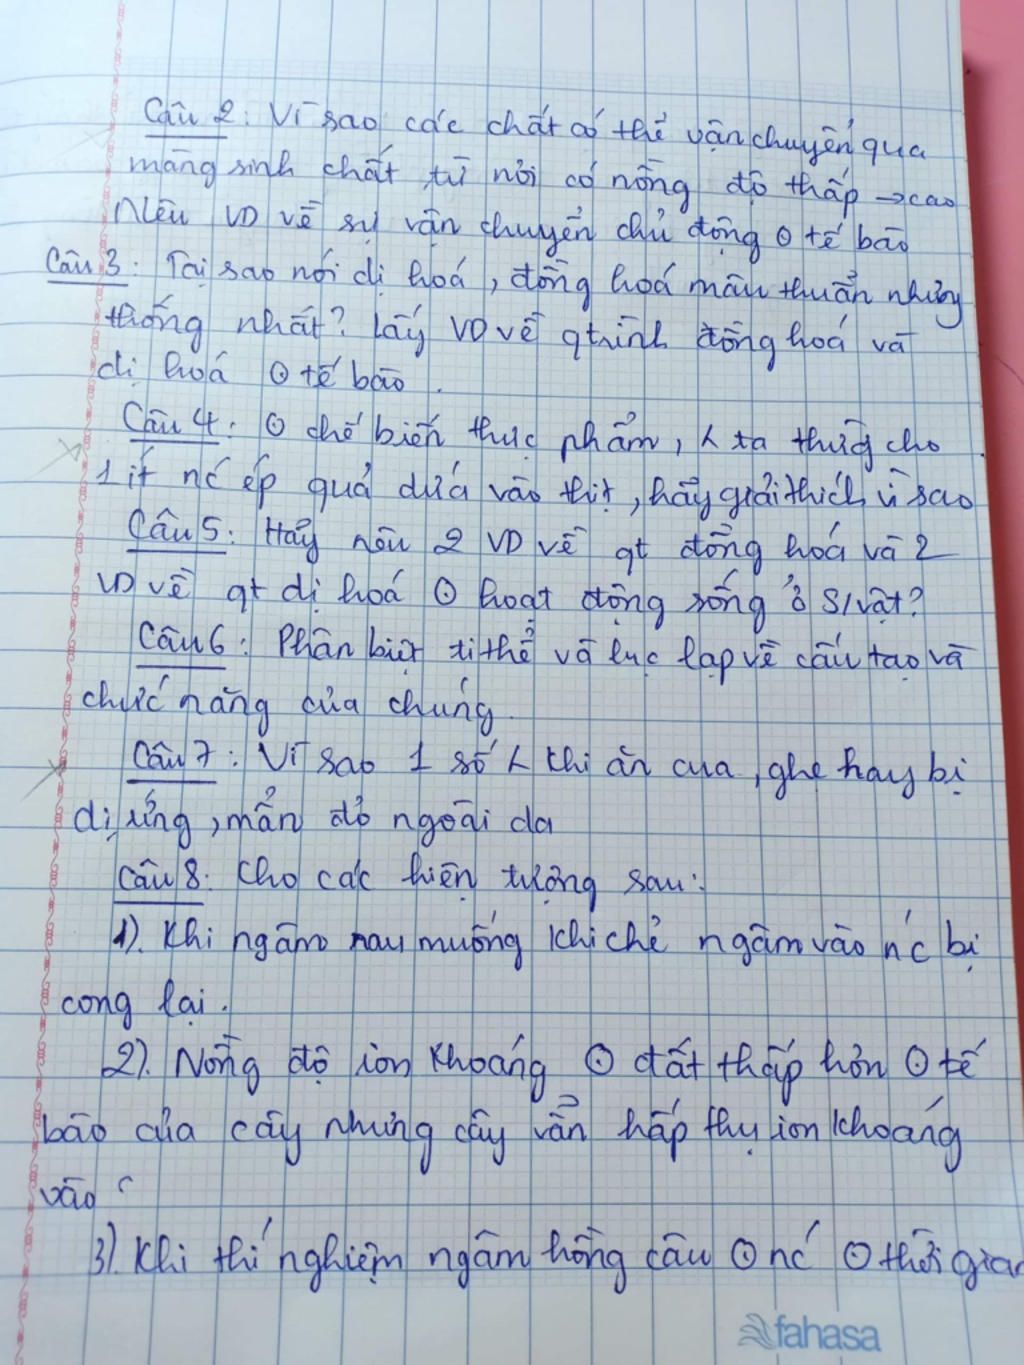 Câu 2: Vì sao các chất có thể vận chuyển qua
màng sinh chất từ nơi có nồng độ thấp → cao
Nêu VD về sự vận chuyển chủ động ⊙ tế bào
Câu 3: Tại sao nói dị hoá, đồng hoá mâu thuẫn nhưng
thống nhất? Lấy VD về qtrình đồng hoá và
dị hoá ⊙ tế bào.
Câu 4: ⊙ chế biến thực phẩm, ta thường cho
1 ít nc ép quả dứa vào thịt, hãy giải thích vì sao
Câu 5: Hãy nêu 2 VD về qt đồng hoá và 2
VD về qt dị hoá ⊙ hoạt động sống ở S/vật?
Câu 6: Phân biệt ti thể và lục lạp về cấu tạo và
chức năng của chúng.
Câu 7: Vì sao 1 số khi ăn cua, ghẹ hay bị
dị ứng, mẩn đỏ ngoài da
Câu 8: Cho các hiện tượng sau:
1). Khi ngâm rau muống khi chẻ ngâm vào nc bị
cong lại.
2). Nồng độ ion khoáng ⊙ đất thấp hơn ⊙ tế
bào của cây nhưng cây vẫn hấp thụ ion khoáng
vào
3). Khi thí nghiệm ngâm hồng cầu ⊙ nc ⊙ thời gian
fahasa